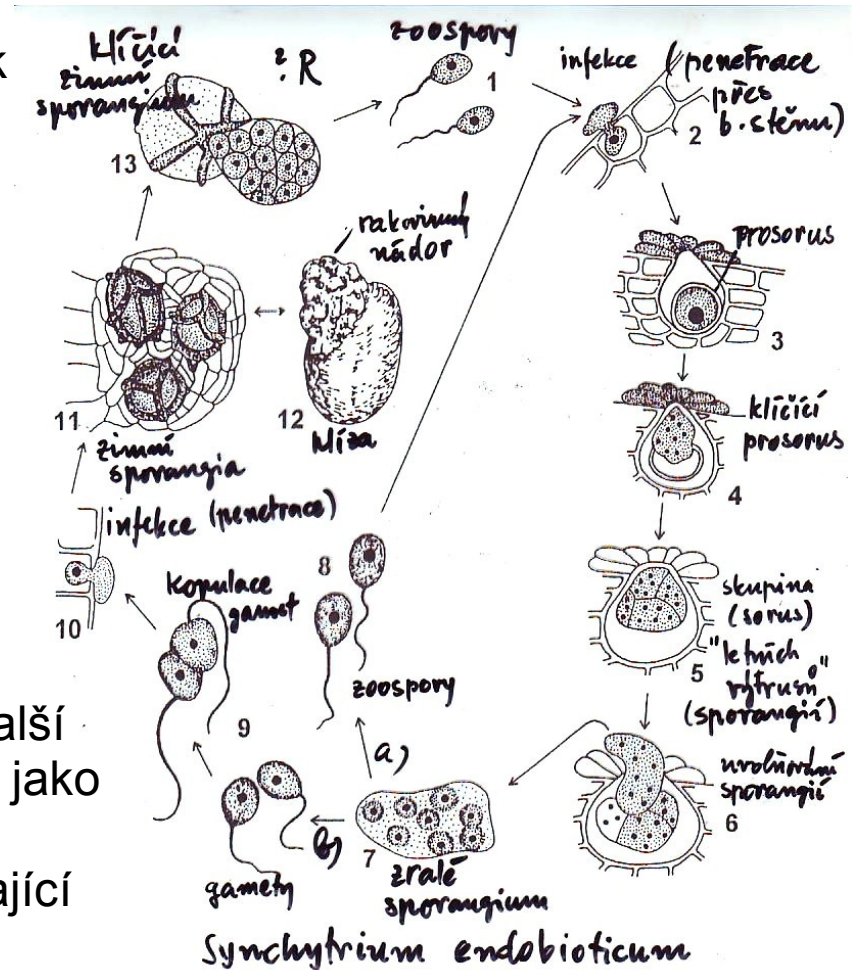 k
klíčící
zimní
sporangium
? R
13
zoospory
1
infekce (penetrace
přes
b. stěnu)
2
prosorus
3
klíčící
prosorus
4
skupina
(sorus)
"letních
výtrusů"
(sporangií)
5
uvolňování
sporangií
6
zralé
sporangium
7
a)
b)
zoospory
8
gamety
kopulace
gamet
9
infekce (penetrace)
10
zimní
sporangia
11
rakovinný
nádor
12
hlíza
alší
jako
ající
Synchytrium endobioticum